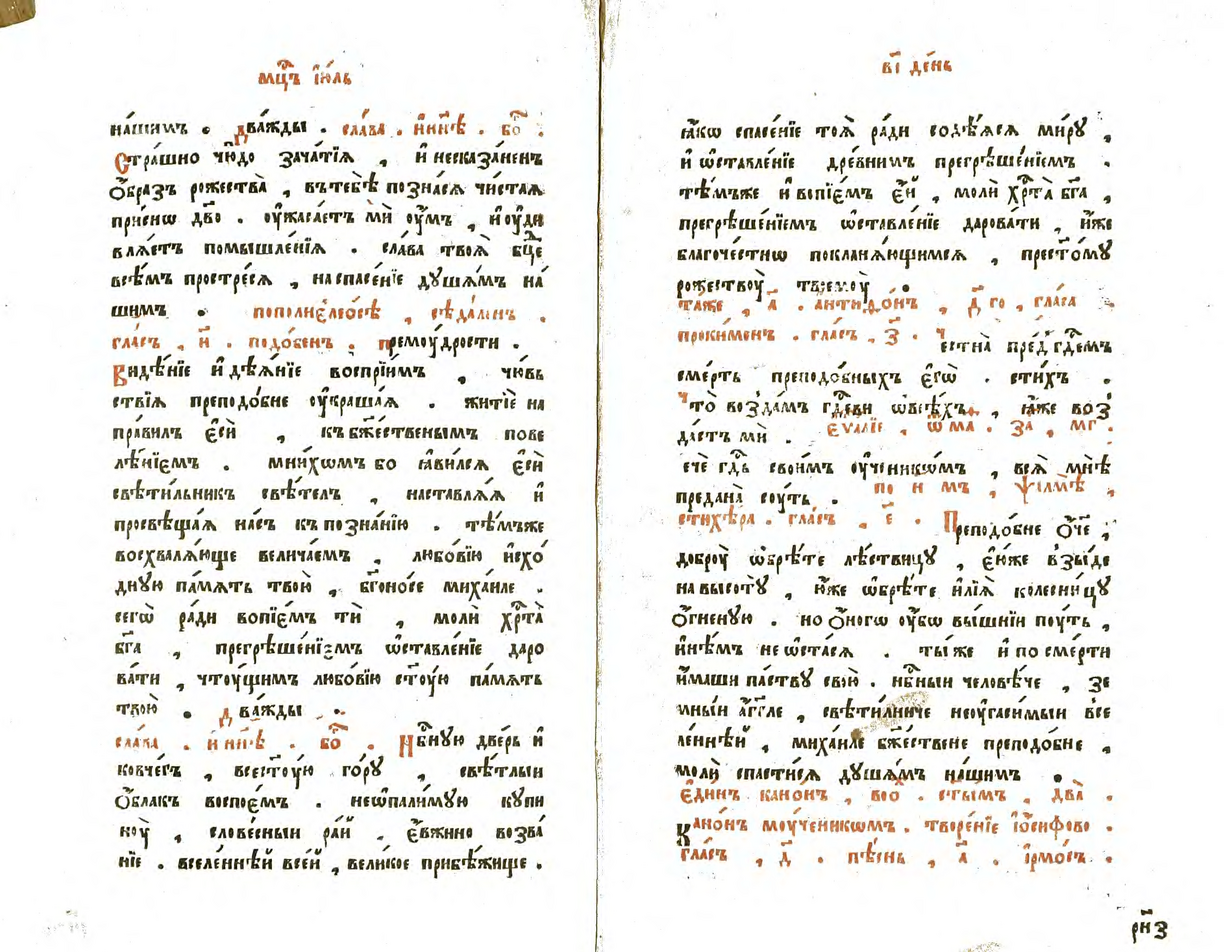 мц҃ъ і҆ю́ль
на́шимъ . два́жды . сла́ва . и҆ нн҃ѣ . бо҃ .
Стра́шно чю́до зача́тїѧ , и҆ несказа́ненъ
о҆́бразъ рожества̀ , въ тебѣ̀ позна́сѧ чи́стаѧ
при́снѡ дв҃о . оу҆жаса́етъ мѝ оу҆́мъ , и҆ оу҆ди
влѧ́етъ помышле́нїѧ . сла́ва твоѧ̀ бц҃е
всѣ́мъ простре́сѧ , на спасе́нїе душа́мъ на́
шимъ . по полиѐлео́сѣ , сѣда́ленъ .
гла́съ , и҃ . подо́бенъ . премоу́дрости .
Видѣ́нїе и҆ дѣѧ́нїе воспрїи́мъ , чю́вь
ствїѧ преподо́бне оу҆краша́ѧ . житїѐ на
пра́вилъ є҆сѝ , къ бж҃ественымъ пове
лѣ́нїємъ . мни́хѡмъ бо ꙗ҆ви́лсѧ є҆сѝ
свѣти́льникъ свѣ́телъ , наставлѧ́ѧ и҆
просвѣща́ѧ на́съ къ позна́нїю . тѣ́мъже
восхвалѧ́юще велича́емъ , любо́вїю и҆схо́
дную па́мѧть твою̀ , бг҃оно́се миха́иле .
сегѡ̀ ра́ди вопїе́мъ тѝ , молѝ хр҃та̀
бг҃а , прегрѣше́нїємъ ѡ҆ставле́нїе даро
ва́ти , чтоу́щимъ любо́вїю ст҃оу́ю па́мѧть
твою̀ . два́жды .
сла́ва . и҆ нн҃ѣ . бо҃ . Нбⷭ҇ную дверь и҆
ковче́гъ , всест҃оу́ю го́ру , свѣ́тлыи
о҆́блакъ воспое́мъ . неѡпали́мую купи
ноу̀ , слове́сныи ра́й , є҆́вжино возва́
нїе . вселе́ннѣй все́й , вели́кое прибѣ́жище .
в҃і де́нь
ꙗ҆́кѡ спасе́нїе тоѧ̀ ра́ди содѣ́ѧсѧ ми́ру ,
и҆ ѡ҆ставле́нїе дре́внимъ прегрѣше́нїємъ .
тѣ́мъже и҆ вопїе́мъ є҆́й , молѝ хр҃та̀ бг҃а ,
прегрѣше́нїємъ ѡ҆ставле́нїе дарова́ти , и҆́же
благоче́стнѡ покланѧ́ющимсѧ , прест҃о́му
рожествоу̀ твоемоу̀ .
та́же , а҃ . антифо́нъ , д҃ го , гла́са .
проки́менъ . гла́съ , з҃ . Честна̀ пред̾ гдⷭ҇емъ
сме́рть преподо́бныхъ є҆гѡ̀ . сти́хъ .
Что̀ возда́мъ гдⷭ҇еви ѡ҆ всѣ́хъ , ꙗ҆́же воз̾
да́стъ мѝ . є҆ѵа҃лїе , ѿ ма . за , мг .
ечѐ гдⷭ҇ь свои́мъ оу҆ченикѡ́мъ , всѧ̀ мнѣ̀
предана̀ соу́ть . по н мъ , ѱалмѣ̀ ,
стихе́ра . гла́съ , е҃ . Преподо́бне о҆́ч҃е ,
доброу̀ ѡ҆брѣ́те лѣ́ствицу , є҆́юже взы́де
на высотꙋ̀ , ю҆́же ѡ҆брѣ́те и҆лїѧ̀ колесни́цу
о҆́гненую . но о҆́ногѡ оу҆́бѡ вы́шнїи поу́ть ,
и҆нѣ́мъ не ѡ҆ста́сѧ . ты́ же и҆ по сме́рти
и҆́маши па́ству свою̀ . нб҃ныи человѣ́че , зе
мны́й а҆́гг҃ле , свѣти́лниче неоугаси́мыи все
ле́ннѣй , миха́иле бж҃ествене преподо́бне ,
молѝ спасти́сѧ душа́мъ на́шимъ .
є҆ди́нъ кано́нъ , воо҃ . ст҃ы́мъ , два̀ .
Кано́нъ моу́ченикѡмъ . творе́нїе і҆о́сифово .
гла́съ , д҃ . пѣ́снь , а҃ . і҆рмо́съ .
рн҃з